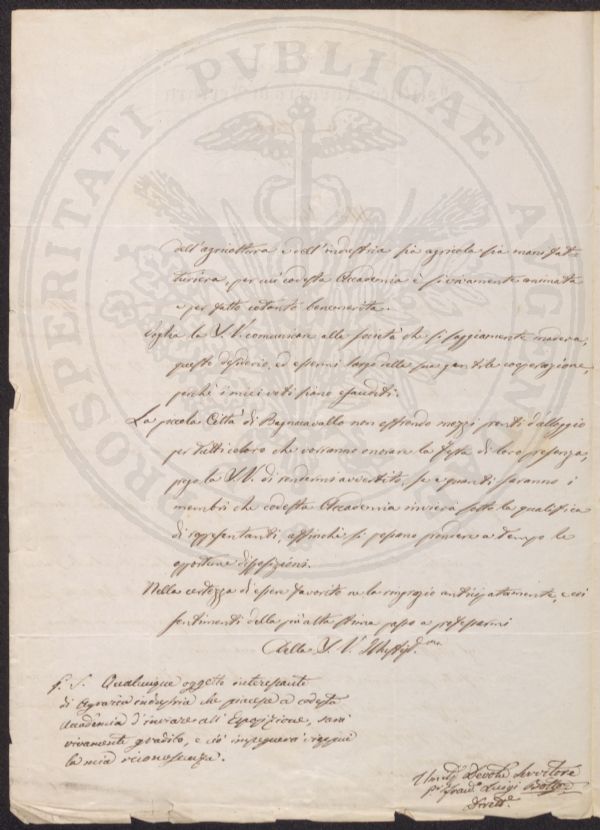 dell'agricoltura e dell'industria sia agricola sia manifat-
turiera, per cui codesta Accademia è sì vivamente animata
e per fatto cotanto benemerita.
Voglia la S. V. comunicare alla società che sì saggiamente modera,
questo desiderio, ed essermi largo della sua gentile cooperazione,
perché i miei voti siano esauditi.
La piccola Città di Bagnacavallo non offrendo mezzi pronti d'alloggio
per tutti coloro che vorranno onorare la festa di loro presenza,
prego la S. V. di rendermi avvertito, se e quanti saranno i
membri che codesta Accademia invierà sotto la qualifica
di rappresentanti, affinché si possano prendere a tempo le
opportune disposizioni.
Nella certezza di essere favorito ne la ringrazio anticipatamente, e coi
sentimenti della più alta stima passo a protestarmi
Della S. V. Illma
P. S. Qualunque oggetto interessante
di Agraria industria che piacesse a codesta
Accademia d'inviare all'Esposizione, sarà
vivamente gradito, e ciò impegnerà vieppiù
la mia riconoscenza.
Devotmo Servitore
Luigi Botter
Dirett.e
PROSPERITATI PVBLICAE AVGENDAE